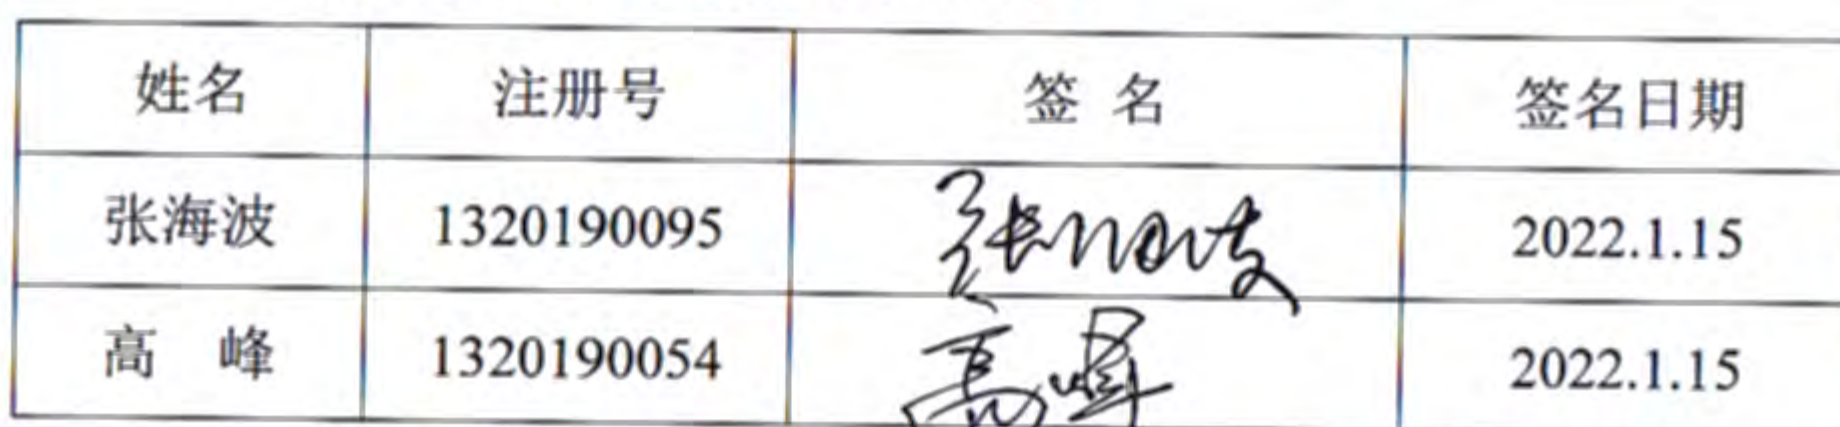 姓名 注册号 签 名 签名日期
张海波 1320190095 张海波 2022.1.15
高 峰 1320190054 高峰 2022.1.15